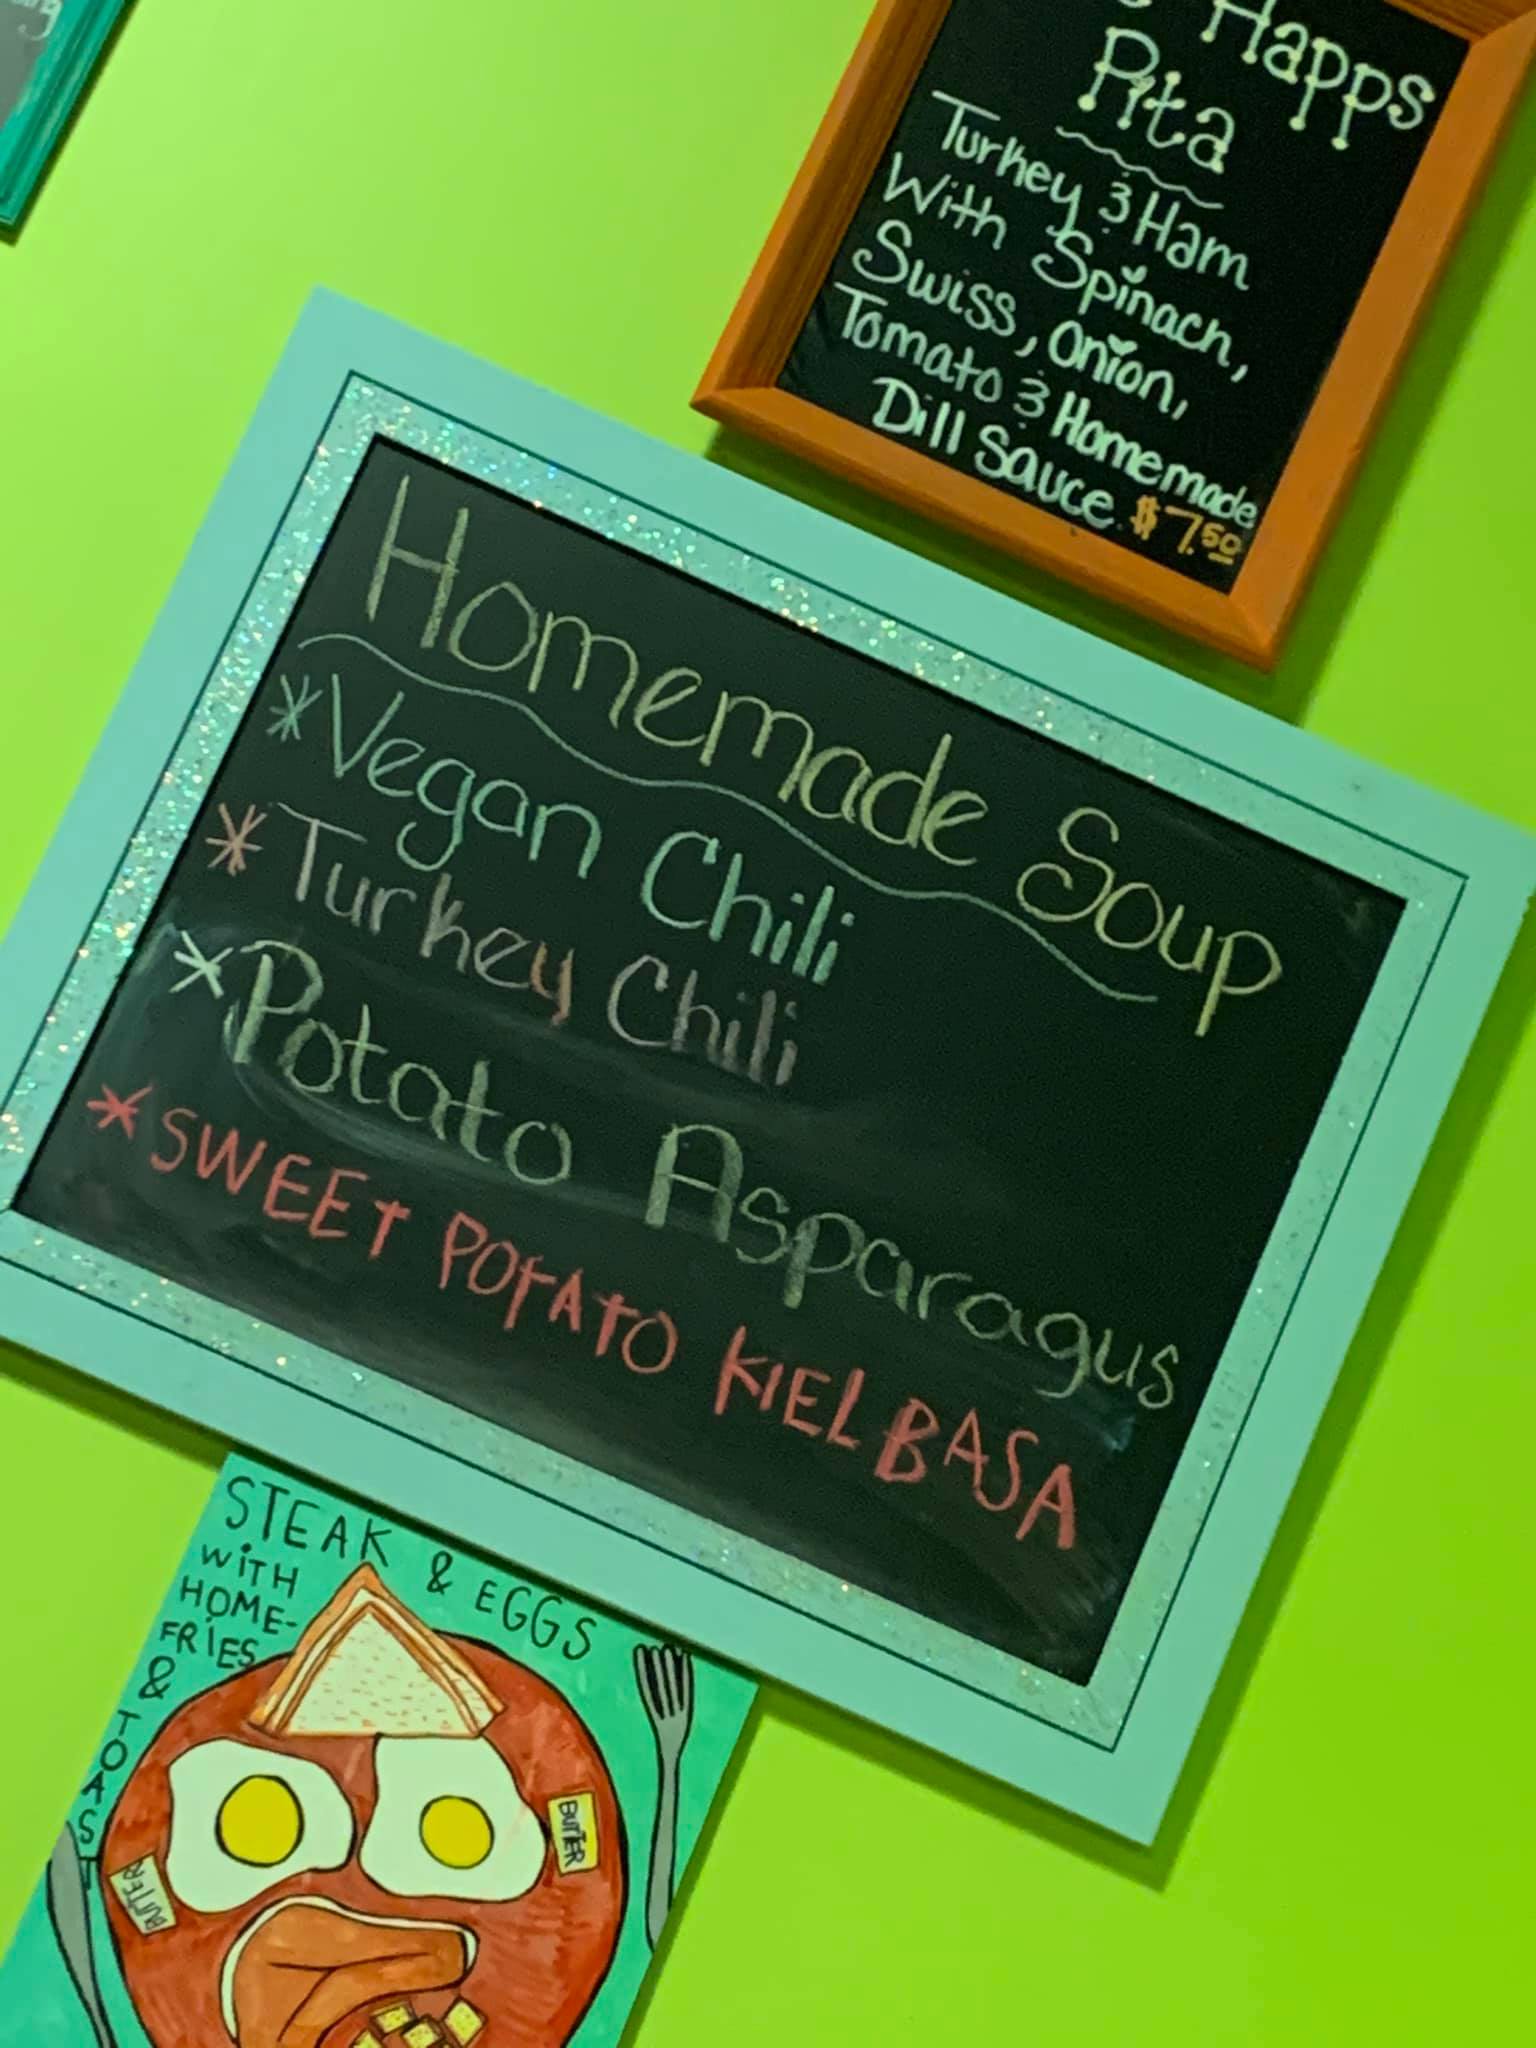 Happs
Pita
Turkey & Ham
With Spinach,
Swiss, Onion,
Tomato & Homemade
Dill Sauce. $7.50
Homemade Soup
*Vegan Chili
*Turkey Chili
*Potato Asparagus
*SWEET POTATO KIELBASA
STEAK & EGGS
WITH
HOME-
FRIES
&
TOAST
BUTTER
BUTTER